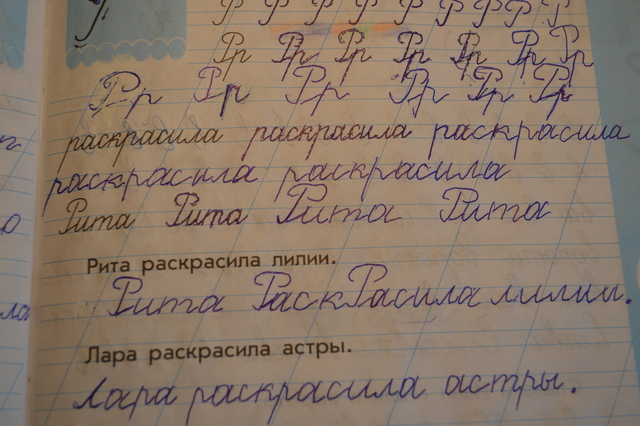 Р Р Р Р Р Р Р Р Р
Рр Рр Рр Рр Рр Рр Рр
Рр Рр Рр Рр Рр Рр
раскрасила раскрасила раскрасила
раскрасила раскрасила
Рита Рита Рита Рита
Рита раскрасила лилии.
Рита РаскРасила лилии.
Лара раскрасила астры.
Лара раскрасила астры.